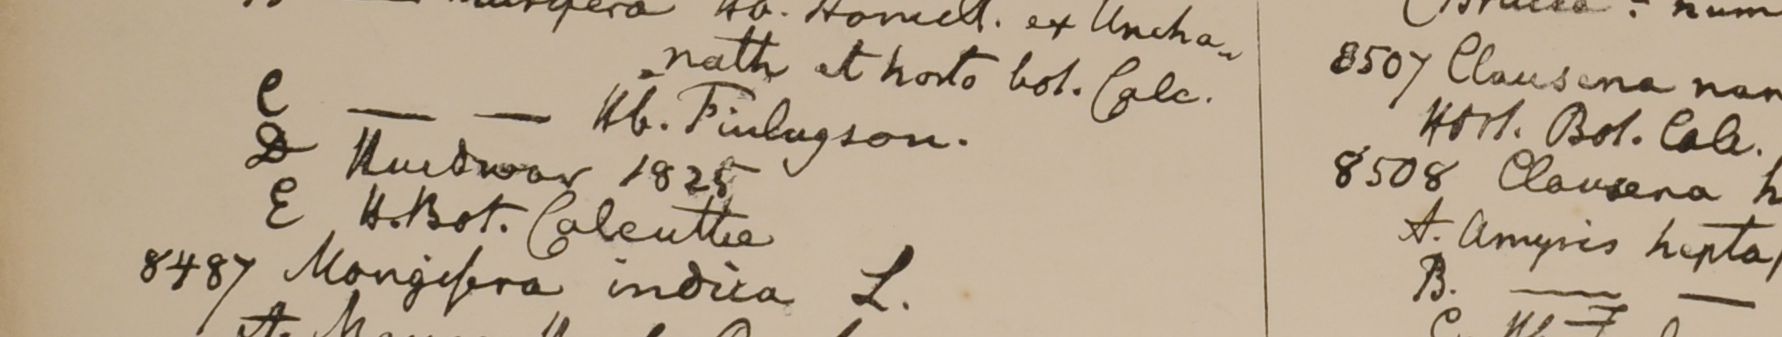 Hb. Hamilt. ex Uncha-
nath et horto bot. Calc.
C — — Hb. Finlayson.
D Hurdwar 1825
E H. Bot. Calcutta
8487 Mangifera indica L.
8507 Clausena
Hort. Bot. Calc.
8508 Clausena h
A. Amyris hepta
B. — —